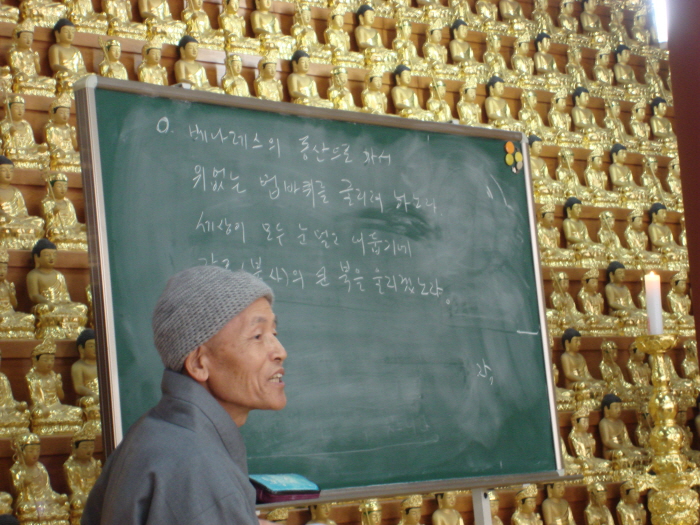 0. 베나레스의 동산으로 가서
위없는 법바퀴를 굴리려 하노니
세상이 모두 눈멀고 어둡기에
감로 (불사)의 큰 북을 울리겠노라.